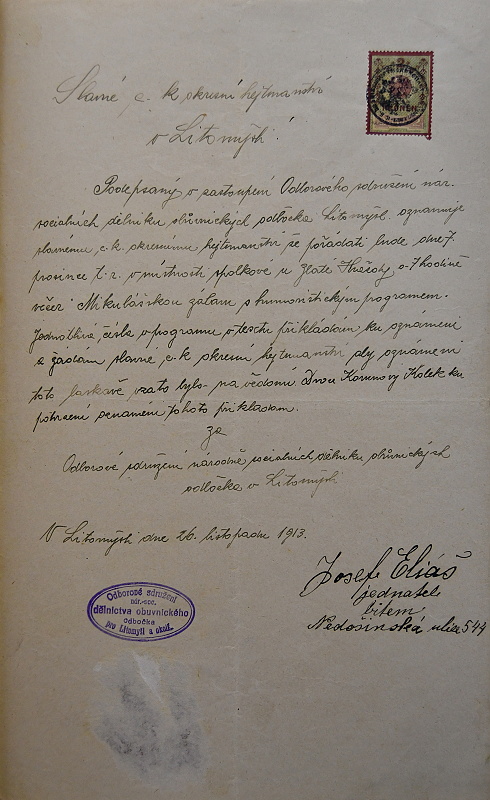 Slavné c. k. okresní hejtmanství
v Litomyšli!
Podepsaný v zastoupení Odborového sdružení nár.
socialních dělniku obůvnických odbočka Litomyšl. oznamuje
slavnemu c. k. okresnímu hejtmanství že pořádati bude dne 7.
prosince t. r. v místnosti spolkové u Zlaté Hvězdy o 7 hodině
večer Mikulášskou zábavu s humoristickým programem.
Jednotlivá čísla v programu v textu přikládám ku oznámení
a žádám slavné c. k. okresní hejtmanství aby oznámení
toto laskavě vzato bylo na vědomí Dvou Korunový Kolek ku
potvrzení oznamení tohoto přikládam.
Za
Odborové sdružení národně socialních dělniku obůvnických
odbočka v Litomyšli
V Litomyšli dne 26. listopadu 1913.
Josef Eliáš
jednatel
bitem
Nedošinská ulice 544
Odborové sdružení
nár.-soc.
dělnictva obuvnického
odbočka
pro Litomyšl a okolí.